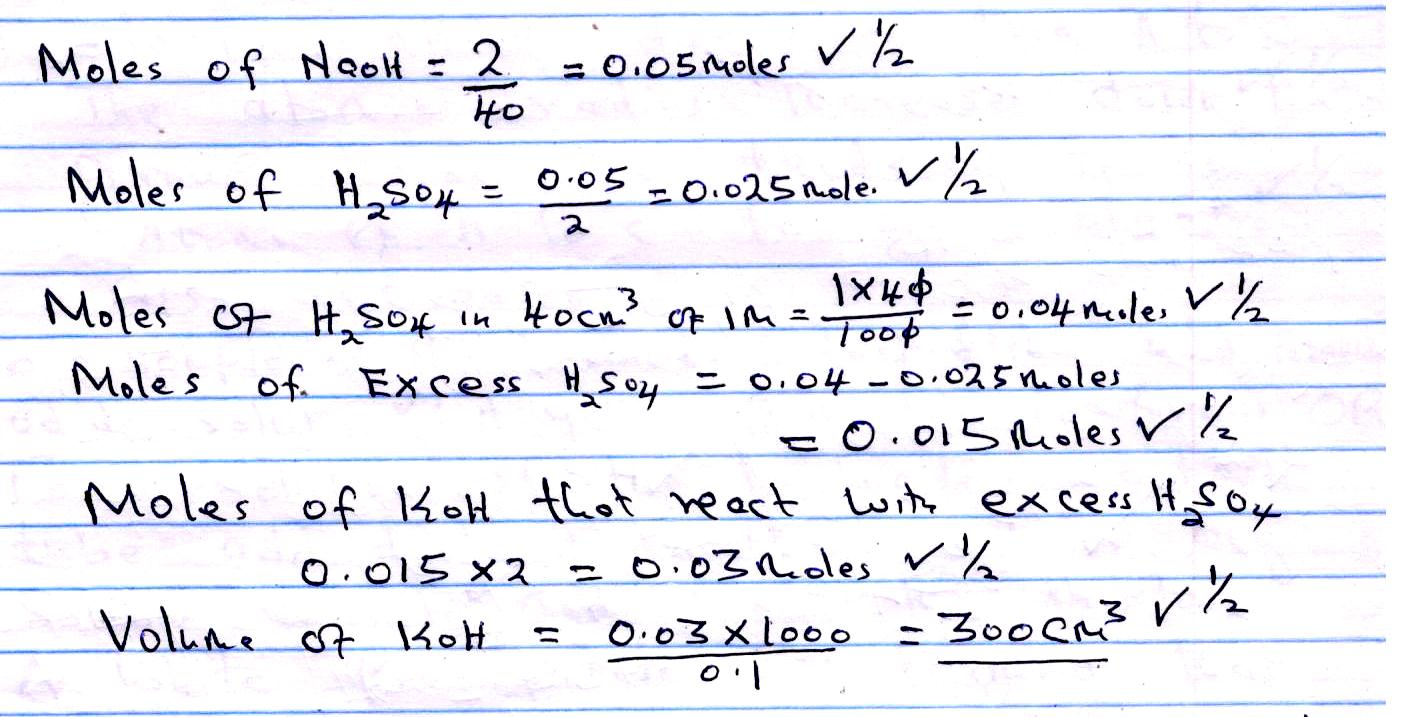 Moles of NaOH = 2/40 = 0.05 moles ✓ ½
Moles of H₂SO₄ = 0.05/2 = 0.025 mole. ✓ ½
Moles of H₂SO₄ in 40cm³ of 1M = 1×40/1000 = 0.04 moles ✓ ½
Moles of Excess H₂SO₄ = 0.04 - 0.025 moles
= 0.015 moles ✓ ½
Moles of KOH that react with excess H₂SO₄
0.015 ×2 = 0.03 moles ✓ ½
Volume of KOH = 0.03 × 1000/0.1 = 300cm³ ✓ ½